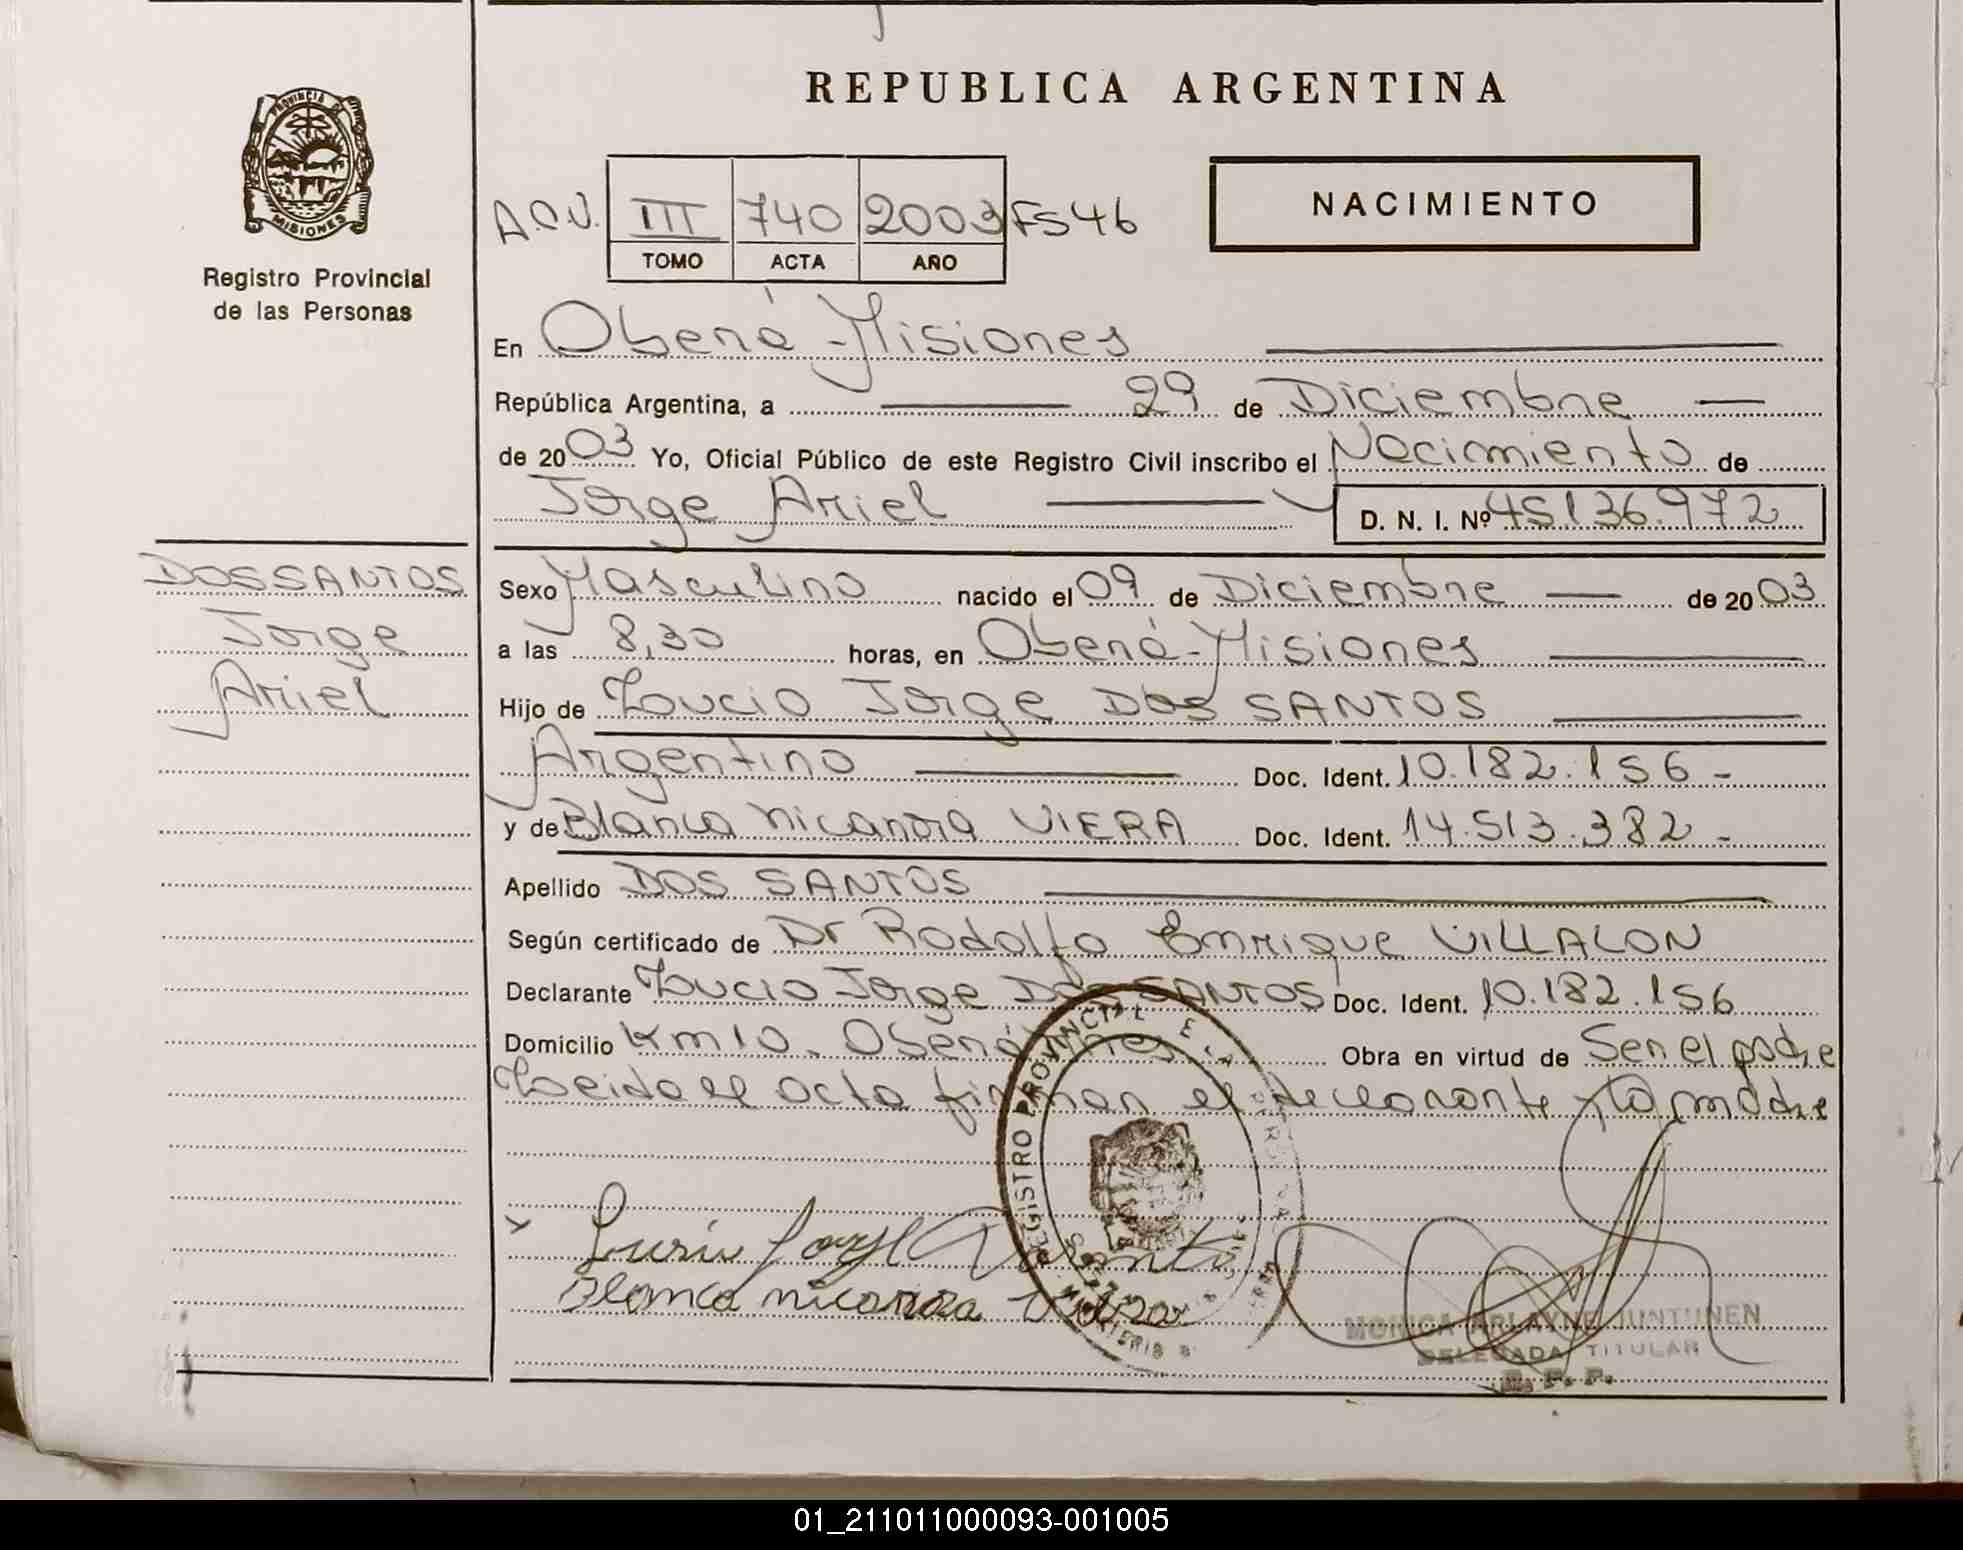 REPUBLICA ARGENTINA
PROVINCIA DE
MISIONES
Registro Provincial
de las Personas
NACIMIENTO
III 740 2003 Fs 46
TOMO ACTA AÑO
En Oberá - Misiones
República Argentina, a 29 de Diciembre
de 2003 Yo, Oficial Público de este Registro Civil inscribo el Nacimiento de
Jorge Ariel D. N. I. Nº 45136.972
DOS SANTOS
Jorge
Ariel
Sexo Masculino nacido el 09 de Diciembre de 2003
a las 8,30 horas, en Oberá - Misiones
Hijo de Lucio Jorge DOS SANTOS
Argentino Doc. Ident. 10.182.156 -
y de Blanca Nicanora VIERA Doc. Ident. 14.513.382 -
Apellido DOS SANTOS
Según certificado de Dr Rodolfo Enrique VILLALON
Declarante Lucio Jorge DOS SANTOS Doc. Ident. 10.182.156
Domicilio Km 10. Oberá Mnes Obra en virtud de Ser el padre
Leida el acta firman el declarante y la madre
REGISTRO PROVINCIAL
Lucio Jorge Santos
Blanca nicanora Viera
MONICA ARLAYNE JUNTUNEN
DELEGADA TITULAR
R. P. P.
01_211011000093-001005